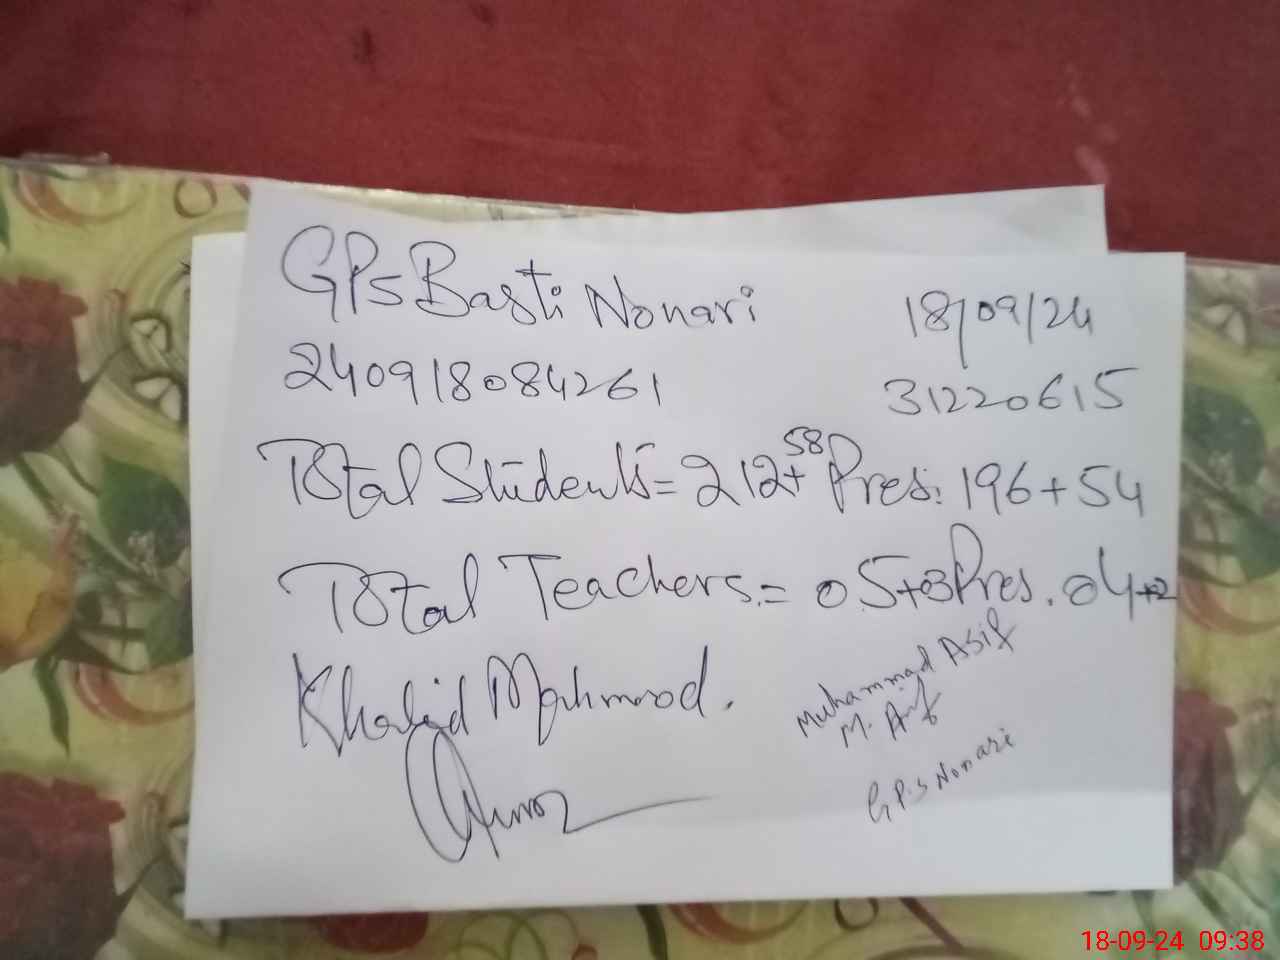 GPS Basti Nonari 18/09/24
240918084261 31220615
Total Students = 212+58 Pres: 196+54
Total Teachers. = 05+03 Pres. 04+2
Khalid Mahmood.
Muhammad Asif
M. Asif
G.P.S Nonari
18-09-24 09:38